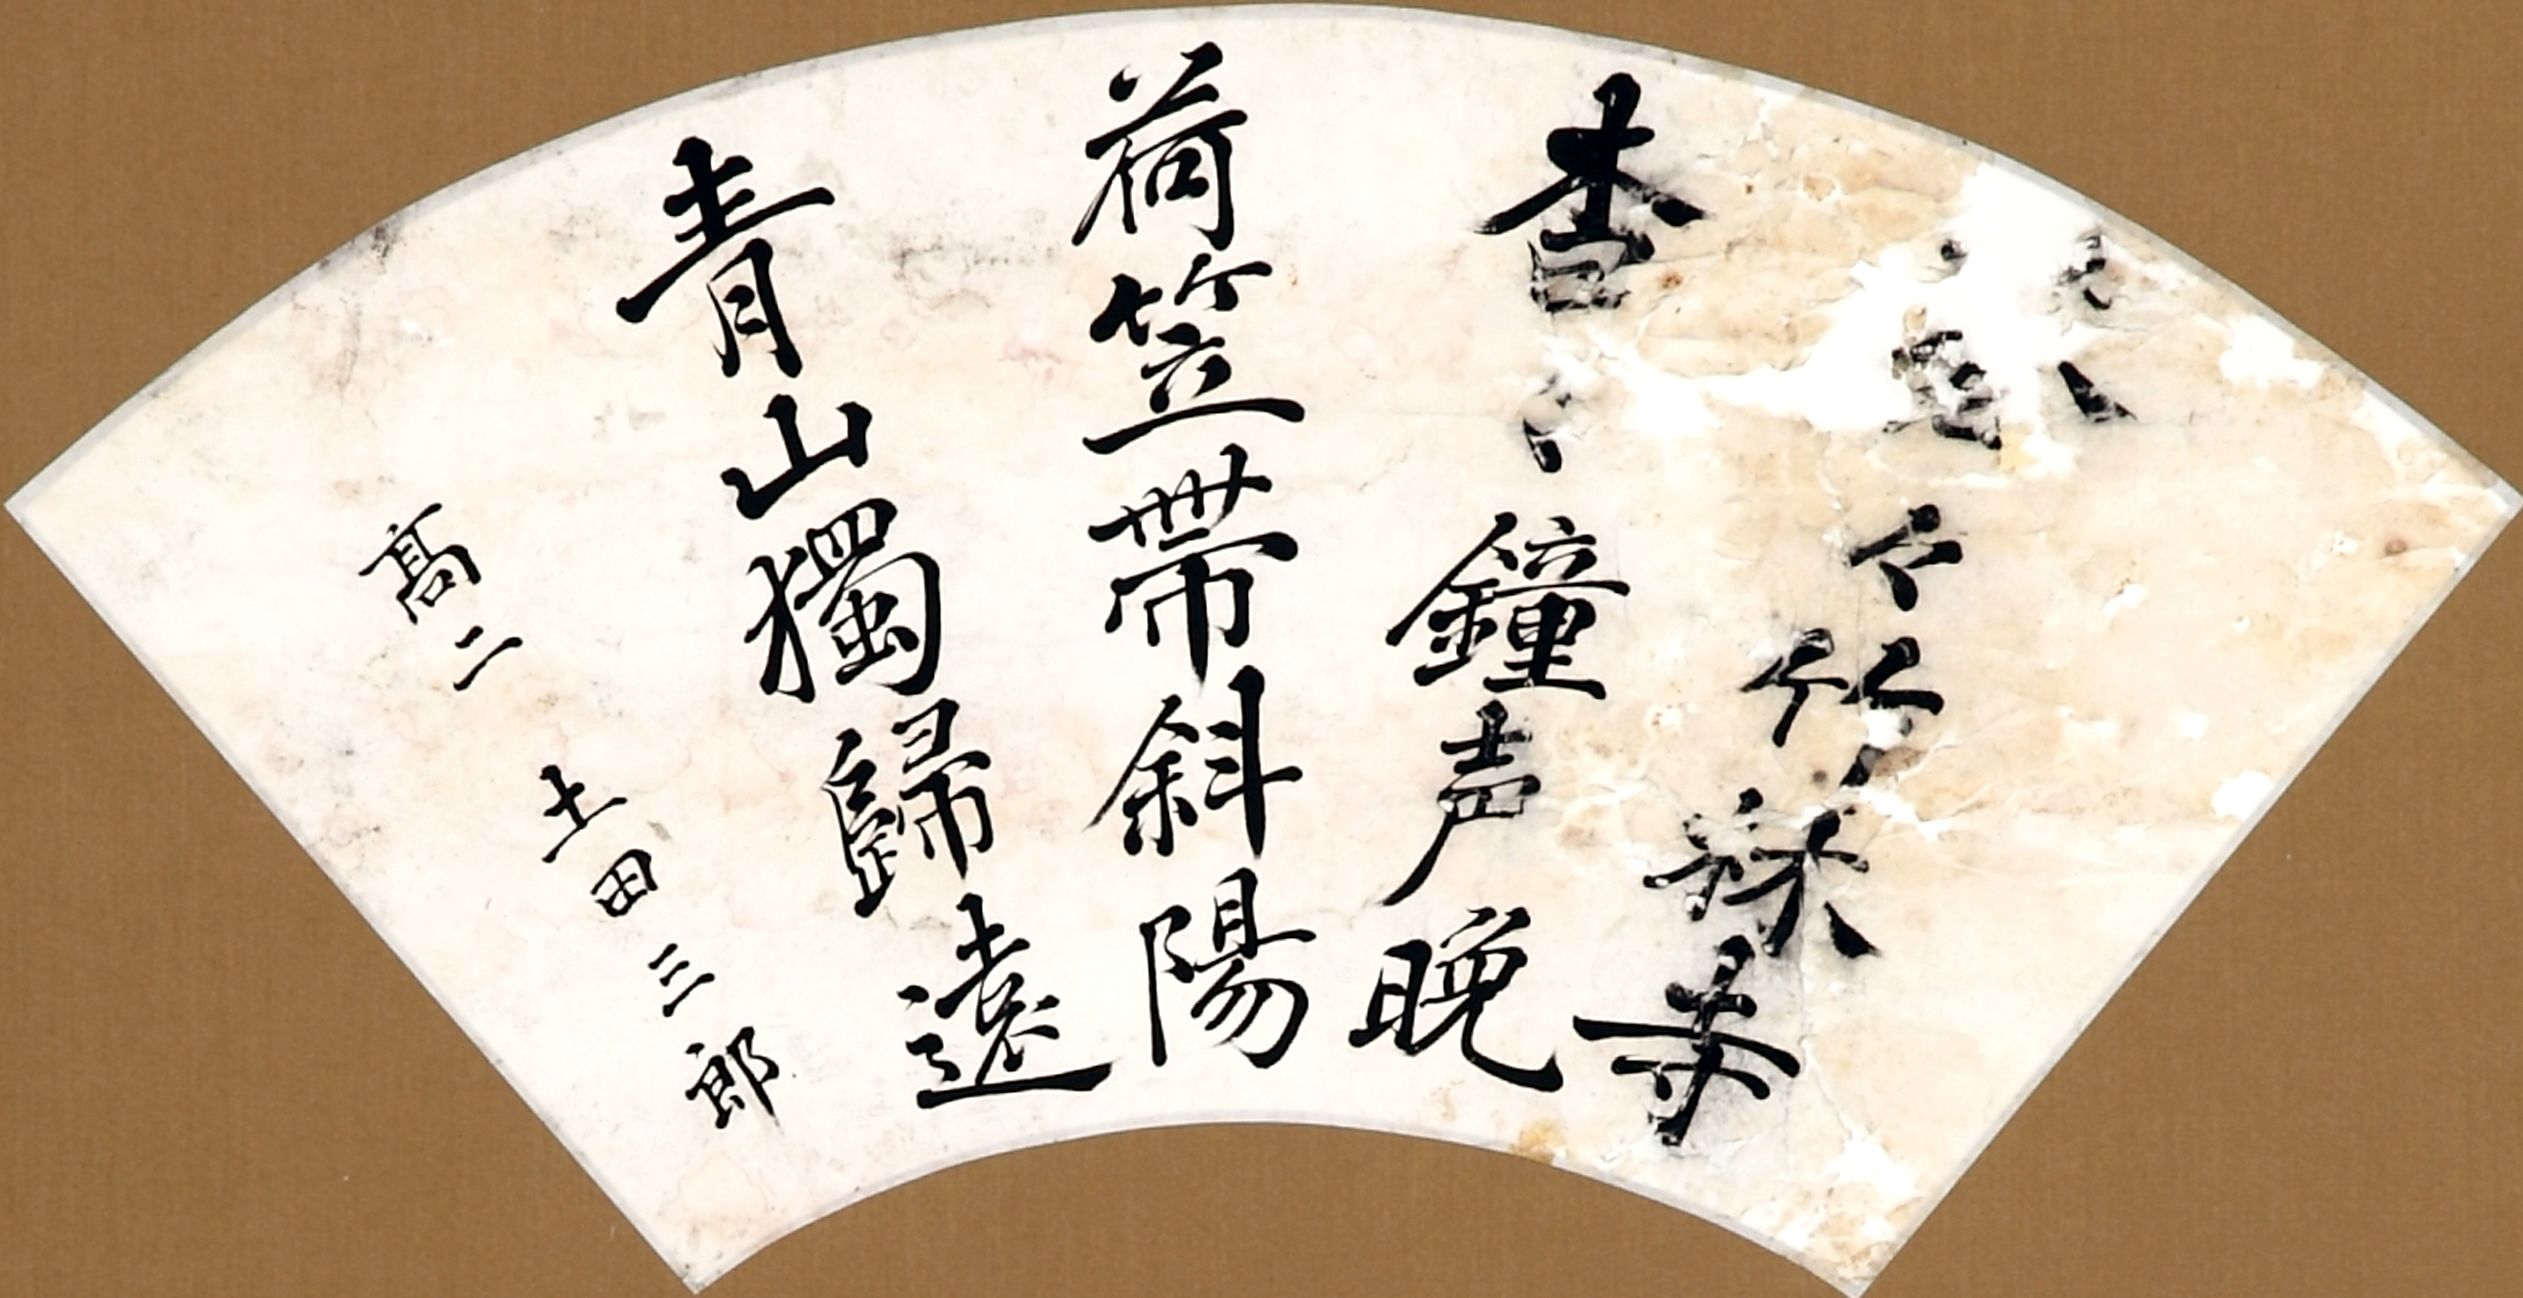 蒼々竹林寺
杳々鐘声晩
荷笠帶斜陽
青山獨歸遠
髙二　土田三郎